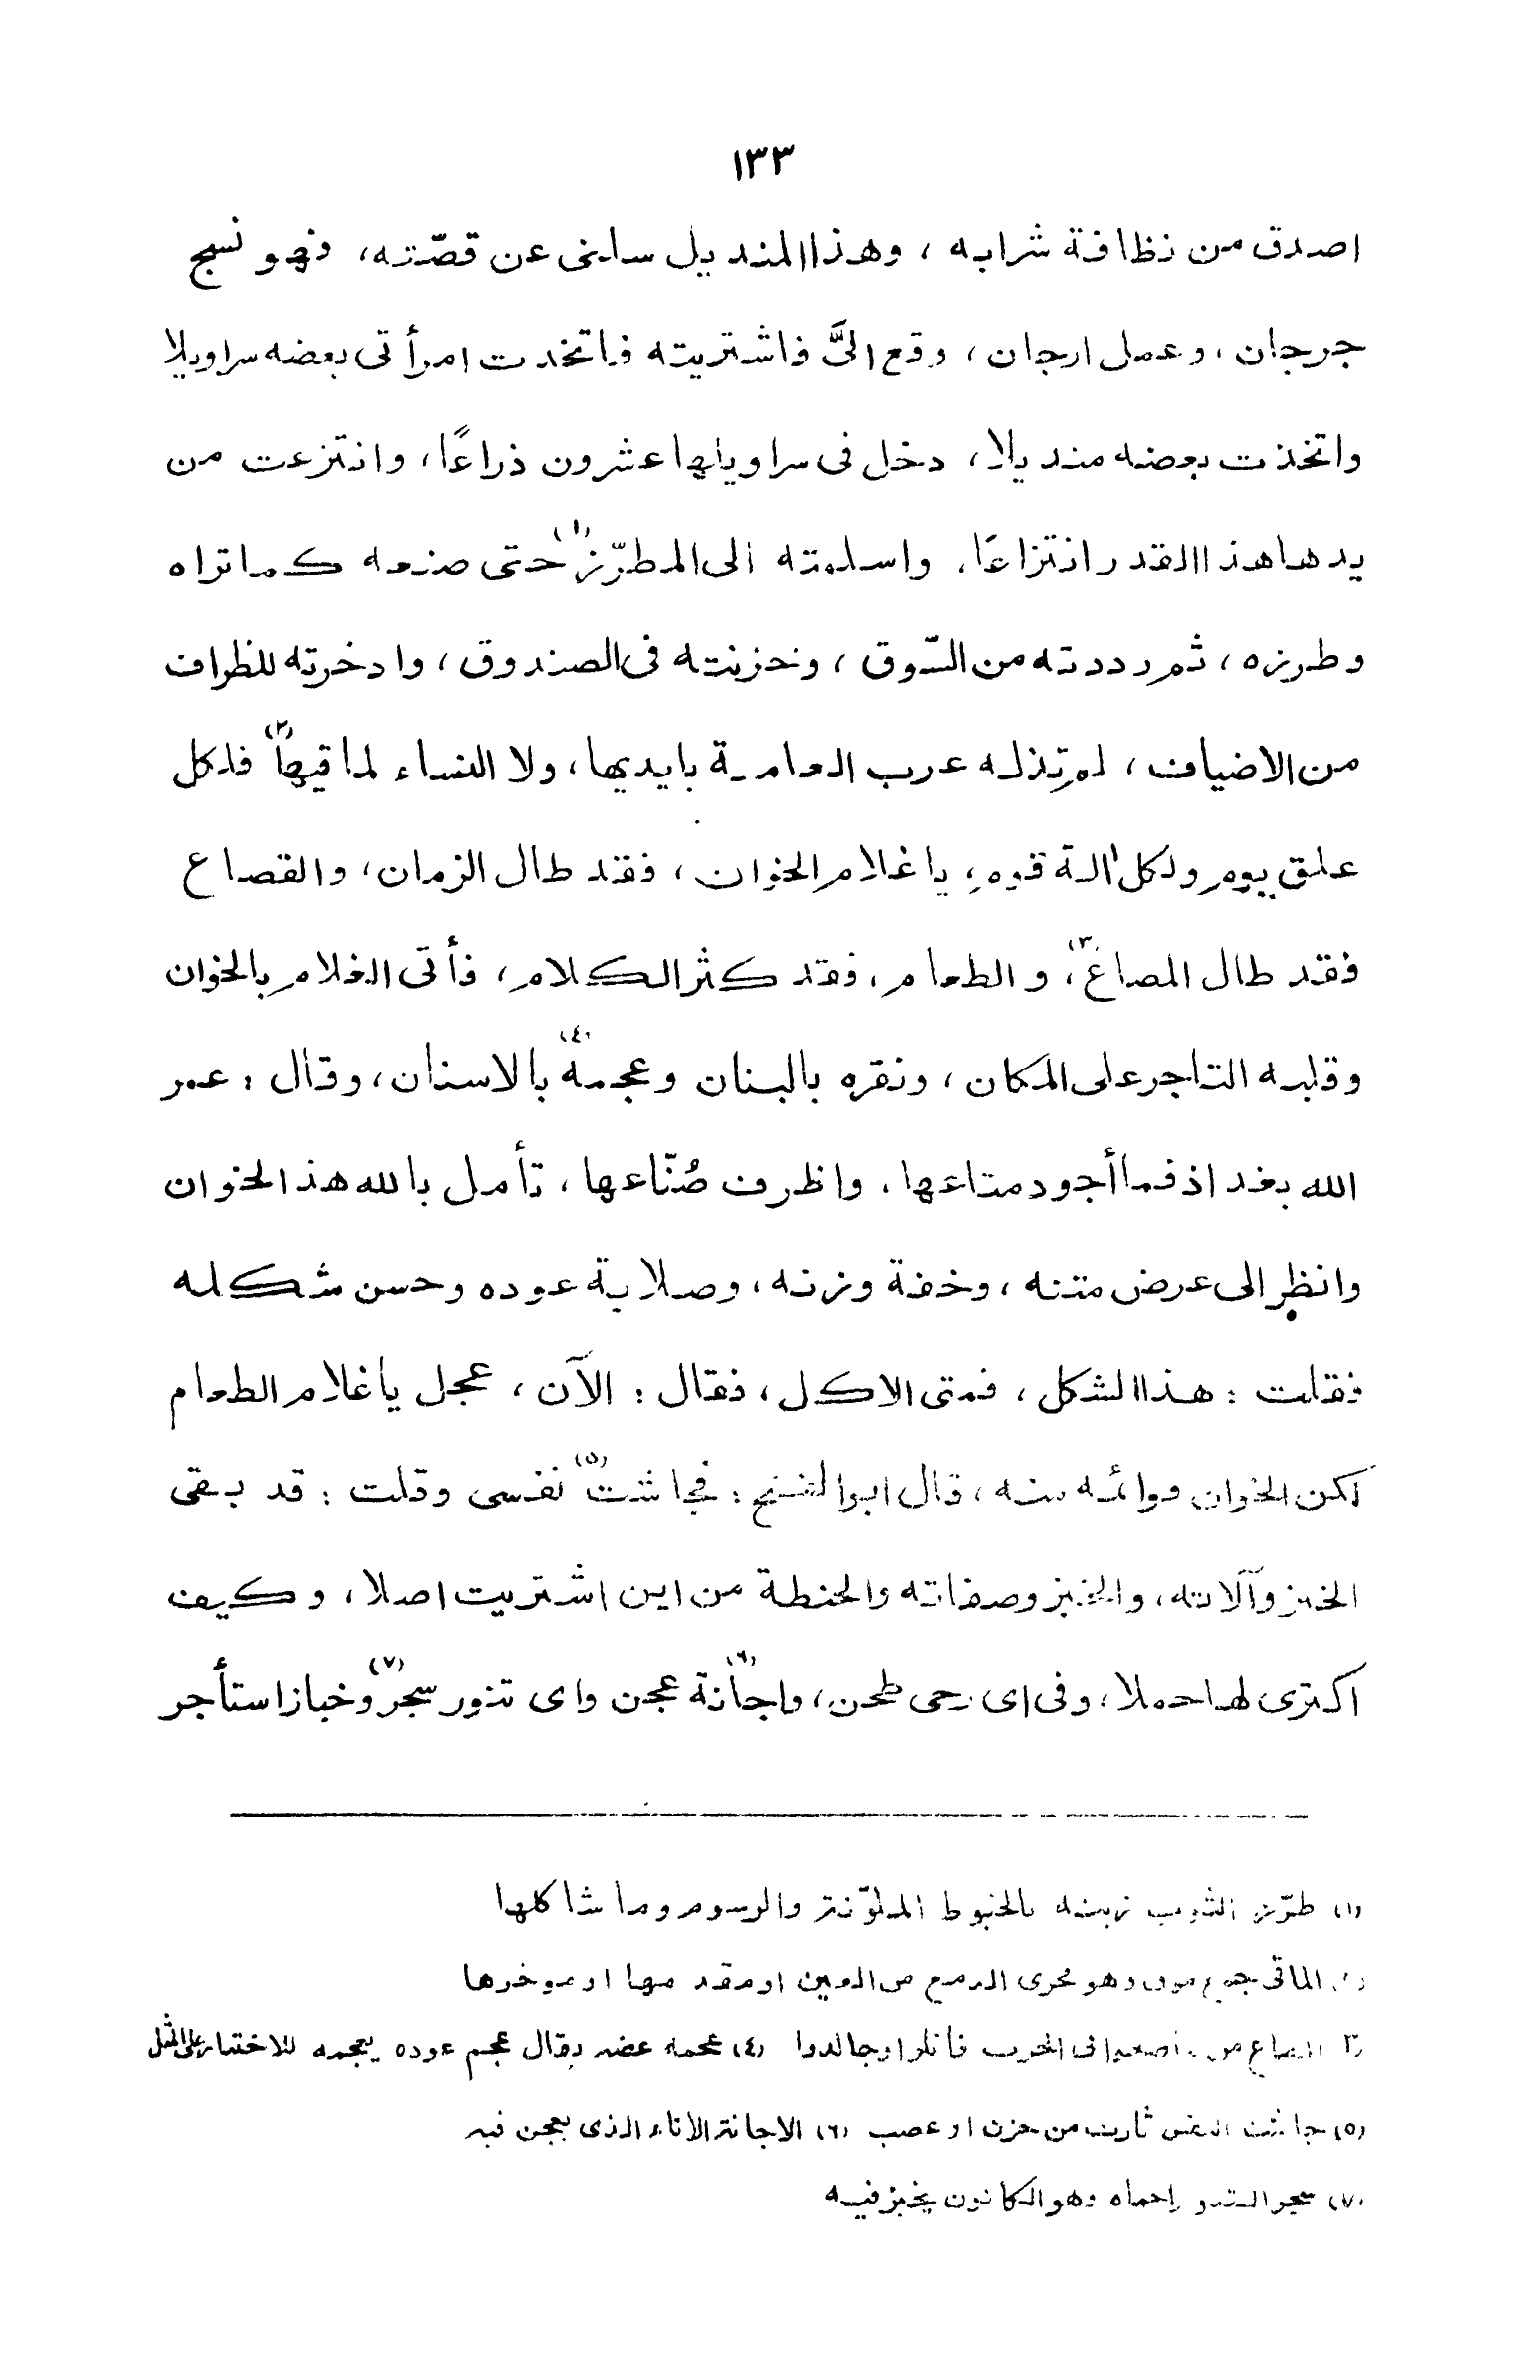 ١٣٣
اصدق من نظافة شرابه ، وهذا المنديل سلنى عن قصّته، فهو نسج
جرجان، وعمل ارجان، وقع الىَّ فاشتريته فاتخدت امرأتى بعضه سراويلا
واتخذت بعضه منديلا، دخل فى سراويلها عشرون ذراعًا، وانتزعت من
يدها هذا القدر انتزاعًا، واسلمته الى المطرّز(١) حتى صنعه كما تراه
وطرزه ، ثم رددته من السّوق ، وخزنته فى الصندوق ، وادخرته للظراف
من الاضياف ، لم تذله عرب العامة بايديها، ولا النساء لما قيها(٢) فلكل
علق يوم ولكل الة قوم، يا غلام الخوان ، فقد طال الزمان، والقصاع
فقد طال المصاع(٣)، والطعام، فقد كثر الكلام ، فأتى الغلام بالخوان
وقلبه التاجر على المكان ، ونقره بالبنان وعجمه(٤) بالاسنان ، وقال : عمر
الله بغداذ فما أجود متاعها، واظرف صُنّاعها ، تأمل بالله هذ الخوان
وانظر الى عرض متنه ، وخفة وزنه، وصلابة عوده وحسن شكله
فقلت : هذا الشكل ، فمتى الاكل ، فقال : الآن ، عجل يا غلام الطعام
لكن الخوان قوائمه منه ، قال ابوا لفتح : فجاشت(٥) نفسى وقلت : قد بقى
الخبز وآلاته، والخبز وصفاته والحنطة من اين اشتريت اصلا ، وكيف
اكترى لها حملا، وفى اى رحى طحن، واجانة(٦) عجن واى تنور سجر(٧) وخباز استأجر
(١) طرّز الثوب زينه بالخيوط الملوّنة والرسوم وما شاكلها
الماقى جمع موق وهو مجرى الدمع من العين او مقدمها او موخرها
٣ المصاع من فى الحرب قاتلوا وجالدوا (٤) عجمه عضه يقال عجم عوده يعجمه للاختبار على المثل
(٥) جاشت النفس ثارت من حزن او غصب (٦) الاجانة الاناء الذى يعجن فيه
(٧) سجر التنور احماه وهو الكانون يخبز فيه